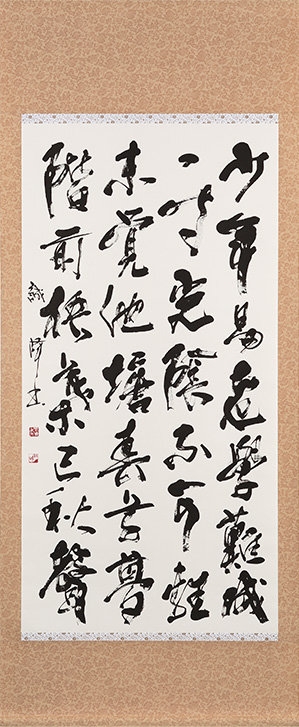 少年易老學難成
一寸光陰不可輕
未覺池塘春草夢
階前梧葉已秋聲
書